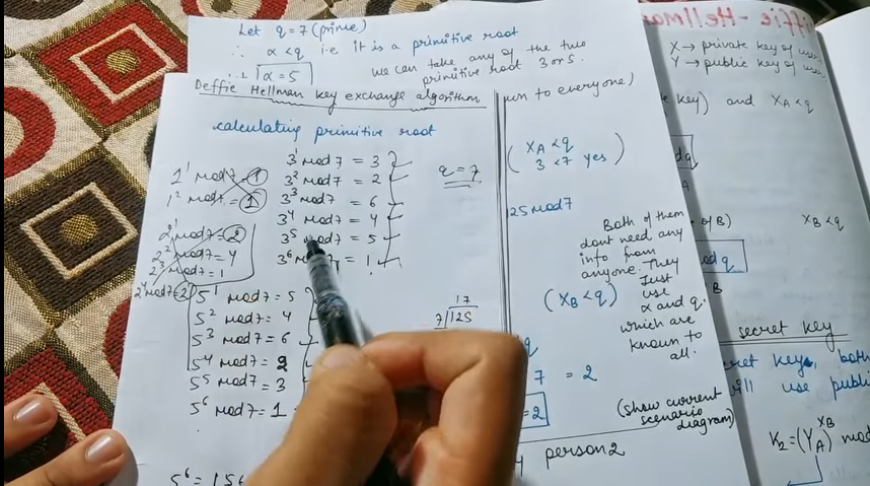 Let q = 7 (prime)
∴ α < q i.e it is a primitive root
∴ α = 5
we can take any of the two
primitive root 3 or 5.
Deffie Hellman key exchange algorithm
calculating primitive root
1¹ mod 7 = 1
1² mod 7 = 1
2¹ mod 7 = 2
2² mod 7 = 4
2³ mod 7 = 1
2⁴ mod 7 = 2
3¹ mod 7 = 3
3² mod 7 = 2
3³ mod 7 = 6
3⁴ mod 7 = 4
3⁵ mod 7 = 5
3⁶ mod 7 = 1
5¹ mod 7 = 5
5² mod 7 = 4
5³ mod 7 = 6
5⁴ mod 7 = 2
5⁵ mod 7 = 3
5⁶ mod 7 = 1
5⁶ = 156
q = 7
17
7 125
to everyone)
(XA < q
3 < 7 yes)
125 mod 7
(XB < q)
7 = 2
= 2
Both of them
dont need any
info from
anyone. They
Just
use
α and q.
which are
known to
all.
(show current
scenario
diagram)
person 2
ffie-Hellma
X → private key of use
Y → public key of use
key) and XA < q
B)
XB < q
od q
B
secret key
cret key, both
ill use publi
K₂ = (YA)^XB mod